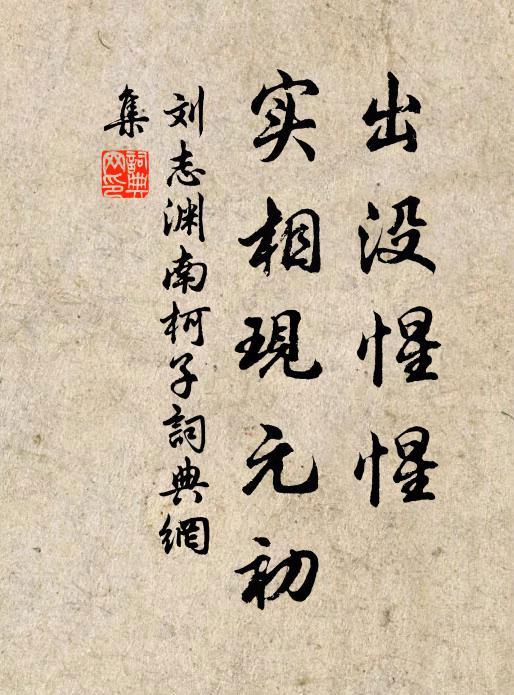 出没惺惺
实相現元初
刘志渊南柯子詞典網
集
詞典
网印